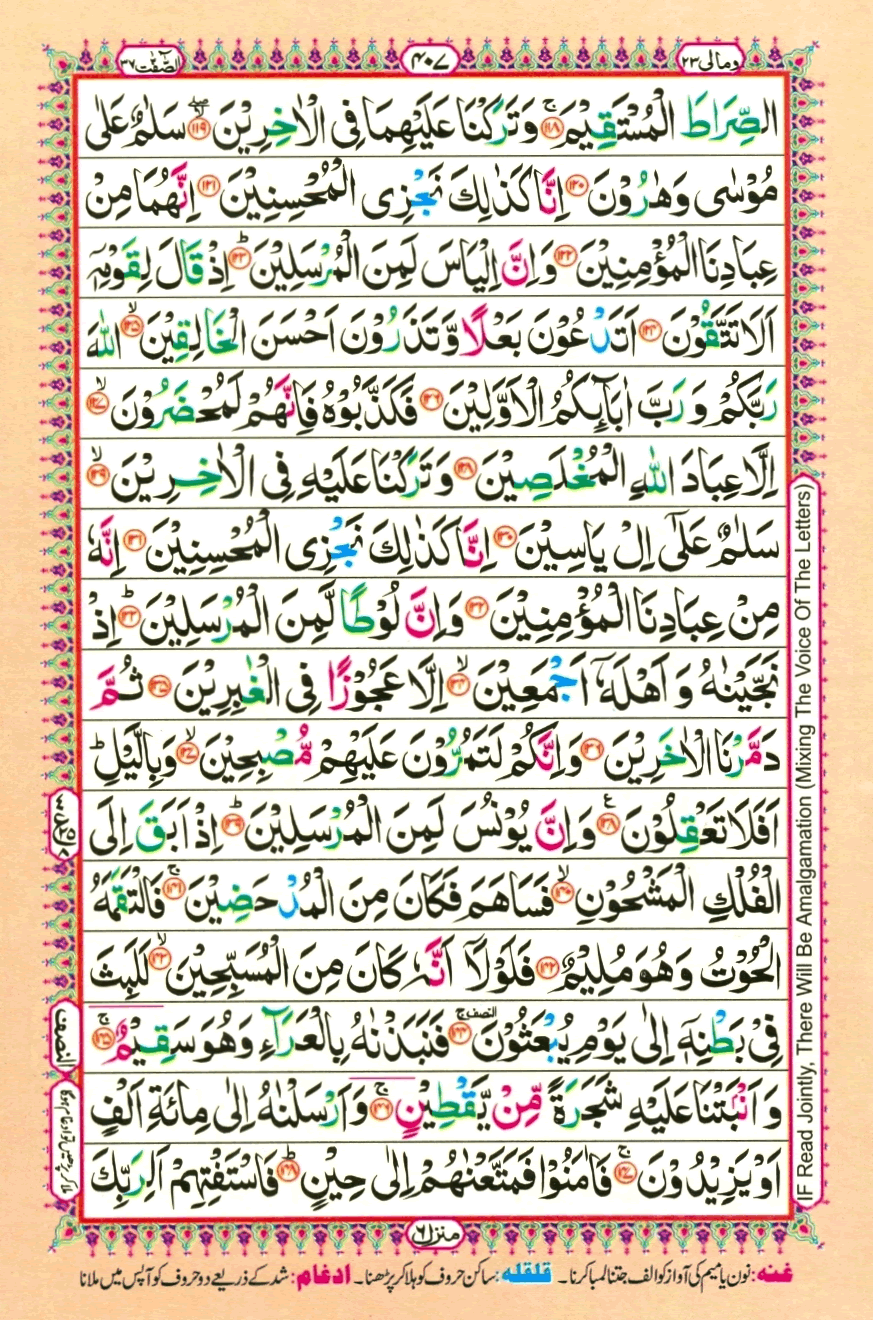 وَمَالِی ٢٣
٤٠٧
الصّٰٓفّٰت ٣٧
الصِّرَاطَ الْمُسْتَقِيْمَ ۚ﴿١١٨﴾ وَتَرَكْنَا عَلَيْهِمَا فِى الْاٰخِرِيْنَ ۙ﴿١١٩﴾ سَلٰمٌ عَلٰى
مُوْسٰى وَهٰرُوْنَ ﴿١٢٠﴾ اِنَّا كَذٰلِكَ نَجْزِى الْمُحْسِنِيْنَ ﴿١٢١﴾ اِنَّهُمَا مِنْ
عِبَادِنَا الْمُؤْمِنِيْنَ ﴿١٢٢﴾ وَاِنَّ اِلْيَاسَ لَمِنَ الْمُرْسَلِيْنَ ؕ﴿١٢٣﴾ اِذْ قَالَ لِقَوْمِهٖۤ
اَلَا تَتَّقُوْنَ ﴿١٢٤﴾ اَتَدْعُوْنَ بَعْلًا وَّتَذَرُوْنَ اَحْسَنَ الْخَالِقِيْنَ ۙ﴿١٢٥﴾ اللّٰهَ
رَبَّكُمْ وَرَبَّ اٰبَآئِكُمُ الْاَوَّلِيْنَ ﴿١٢٦﴾ فَكَذَّبُوْهُ فَاِنَّهُمْ لَمُحْضَرُوْنَ ۙ﴿١٢٧﴾
اِلَّا عِبَادَ اللّٰهِ الْمُخْلَصِيْنَ ﴿١٢٨﴾ وَتَرَكْنَا عَلَيْهِ فِى الْاٰخِرِيْنَ ۙ﴿١٢٩﴾
سَلٰمٌ عَلٰٓى اِلْ يَاسِيْنَ ﴿١٣٠﴾ اِنَّا كَذٰلِكَ نَجْزِى الْمُحْسِنِيْنَ ﴿١٣١﴾ اِنَّهٗ
مِنْ عِبَادِنَا الْمُؤْمِنِيْنَ ﴿١٣٢﴾ وَاِنَّ لُوْطًا لَّمِنَ الْمُرْسَلِيْنَ ؕ﴿١٣٣﴾ اِذْ
نَجَّيْنٰهُ وَاَهْلَهٗۤ اَجْمَعِيْنَ ۙ﴿١٣٤﴾ اِلَّا عَجُوْزًا فِى الْغٰبِرِيْنَ ﴿١٣٥﴾ ثُمَّ
دَمَّرْنَا الْاٰخَرِيْنَ ﴿١٣٦﴾ وَاِنَّكُمْ لَتَمُرُّوْنَ عَلَيْهِمْ مُّصْبِحِيْنَ ۙ﴿١٣٧﴾ وَبِالَّيْلِ ؕ
اَفَلَا تَعْقِلُوْنَ ۧ﴿١٣٨﴾ وَاِنَّ يُوْنُسَ لَمِنَ الْمُرْسَلِيْنَ ؕ﴿١٣٩﴾ اِذْ اَبَقَ اِلَى
الْفُلْكِ الْمَشْحُوْنِ ۙ﴿١٤٠﴾ فَسَاهَمَ فَكَانَ مِنَ الْمُدْحَضِيْنَ ۚ﴿١٤١﴾ فَالْتَقَمَهُ
الْحُوْتُ وَهُوَ مُلِيْمٌ ﴿١٤٢﴾ فَلَوْلَاۤ اَنَّهٗ كَانَ مِنَ الْمُسَبِّحِيْنَ ۙ﴿١٤٣﴾ لَلَبِثَ
فِىْ بَطْنِهٖۤ اِلٰى يَوْمِ يُبْعَثُوْنَ ۚ﴿١٤٤﴾ النصف فَنَبَذْنٰهُ بِالْعَرَآءِ وَهُوَ سَقِيْمٌ ۚ﴿١٤٥﴾
وَاَنْۢبَتْنَا عَلَيْهِ شَجَرَةً مِّنْ يَّقْطِيْنٍ ۚ﴿١٤٦﴾ وَاَرْسَلْنٰهُ اِلٰى مِائَةِ اَلْفٍ
اَوْ يَزِيْدُوْنَ ۚ﴿١٤٧﴾ فَاٰمَنُوْا فَمَتَّعْنٰهُمْ اِلٰى حِيْنٍ ؕ﴿١٤٨﴾ فَاسْتَفْتِهِمْ اَلِرَبِّكَ
IF Read Jointly, There Will Be Amalgamation (Mixing The Voice Of The Letters)
النصف
ملا کر پڑھیں تو ادغام ہوگا
منزل ٦
غنه: نون یا میم کی آواز کو الف جتنا لمبا کرنا۔ قلقله: ساکن حروف کو ہلا کر پڑھنا۔ ادغام: شد کے ذریعے دو حروف کو آپس میں ملانا